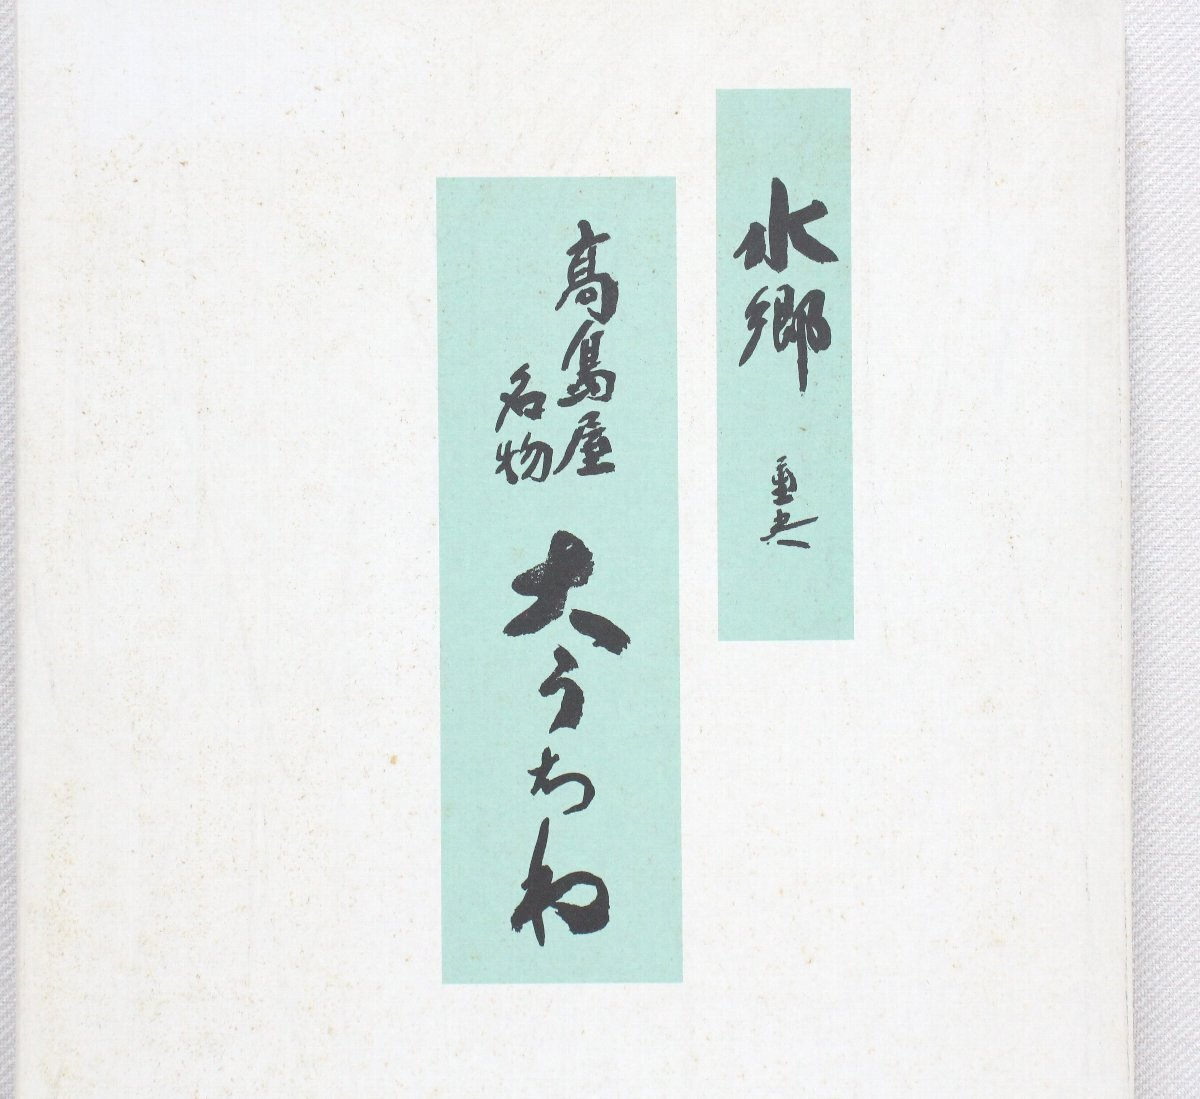 水郷
髙島屋
名物
大うちわ